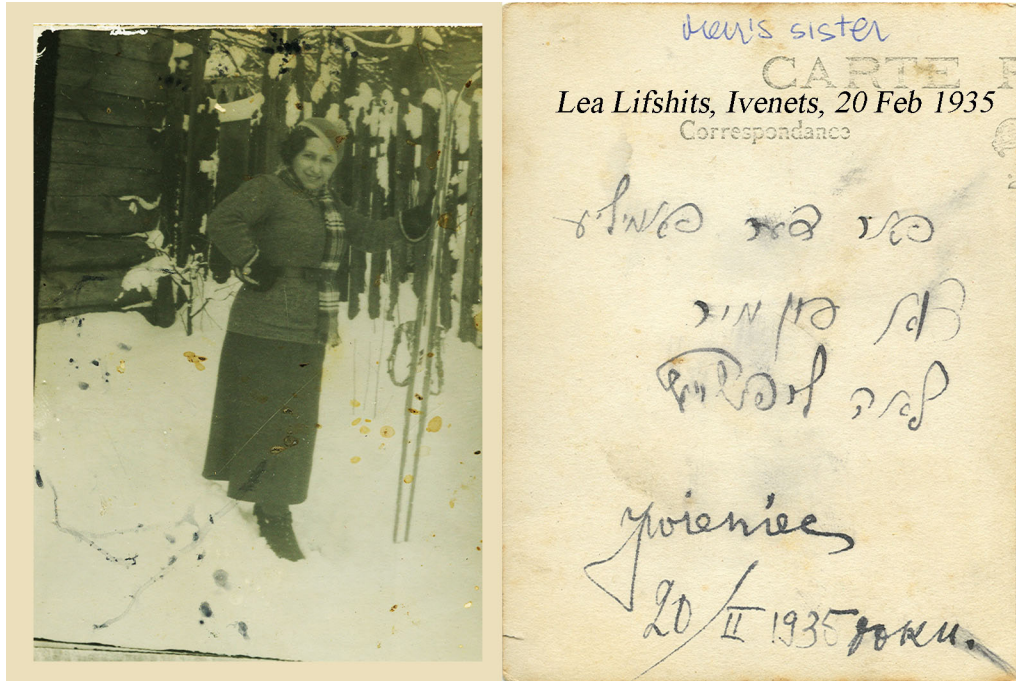 sister
CARTE
Lea Lifshits, Ivenets, 20 Feb 1935
Correspondance
פאר דער פאמיליע
פון מיר
לאה ליפשיץ
Iwieniec
20/II 1935 roku.